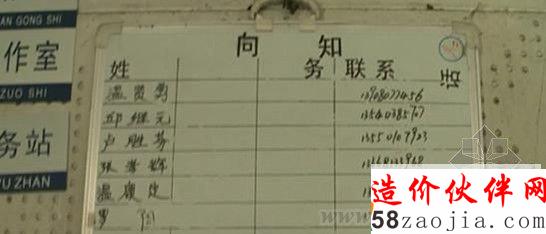 AN GONG SHI
作室
ZUO SHI
务站
WU ZHAN
向 知
姓 务 联系 话
温贤勇 13908077456
邱继元 13540385707
卢胜芬 13550107903
张孝辉
温康定
罗
造价伙伴网
58zaojia.com